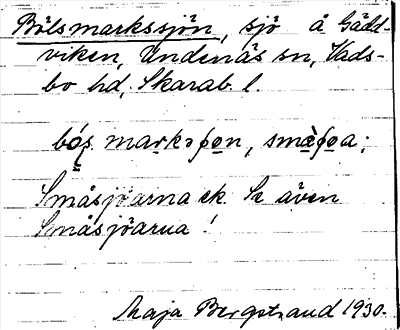 Bölsmarkssjön, sjö å Gädd-
viken, Undenäs sn, Vads-
bo hd, Skarab. l.
Småsjöarna ek. Se även
Småsjöarna!
Maja Bergstrand 1930.